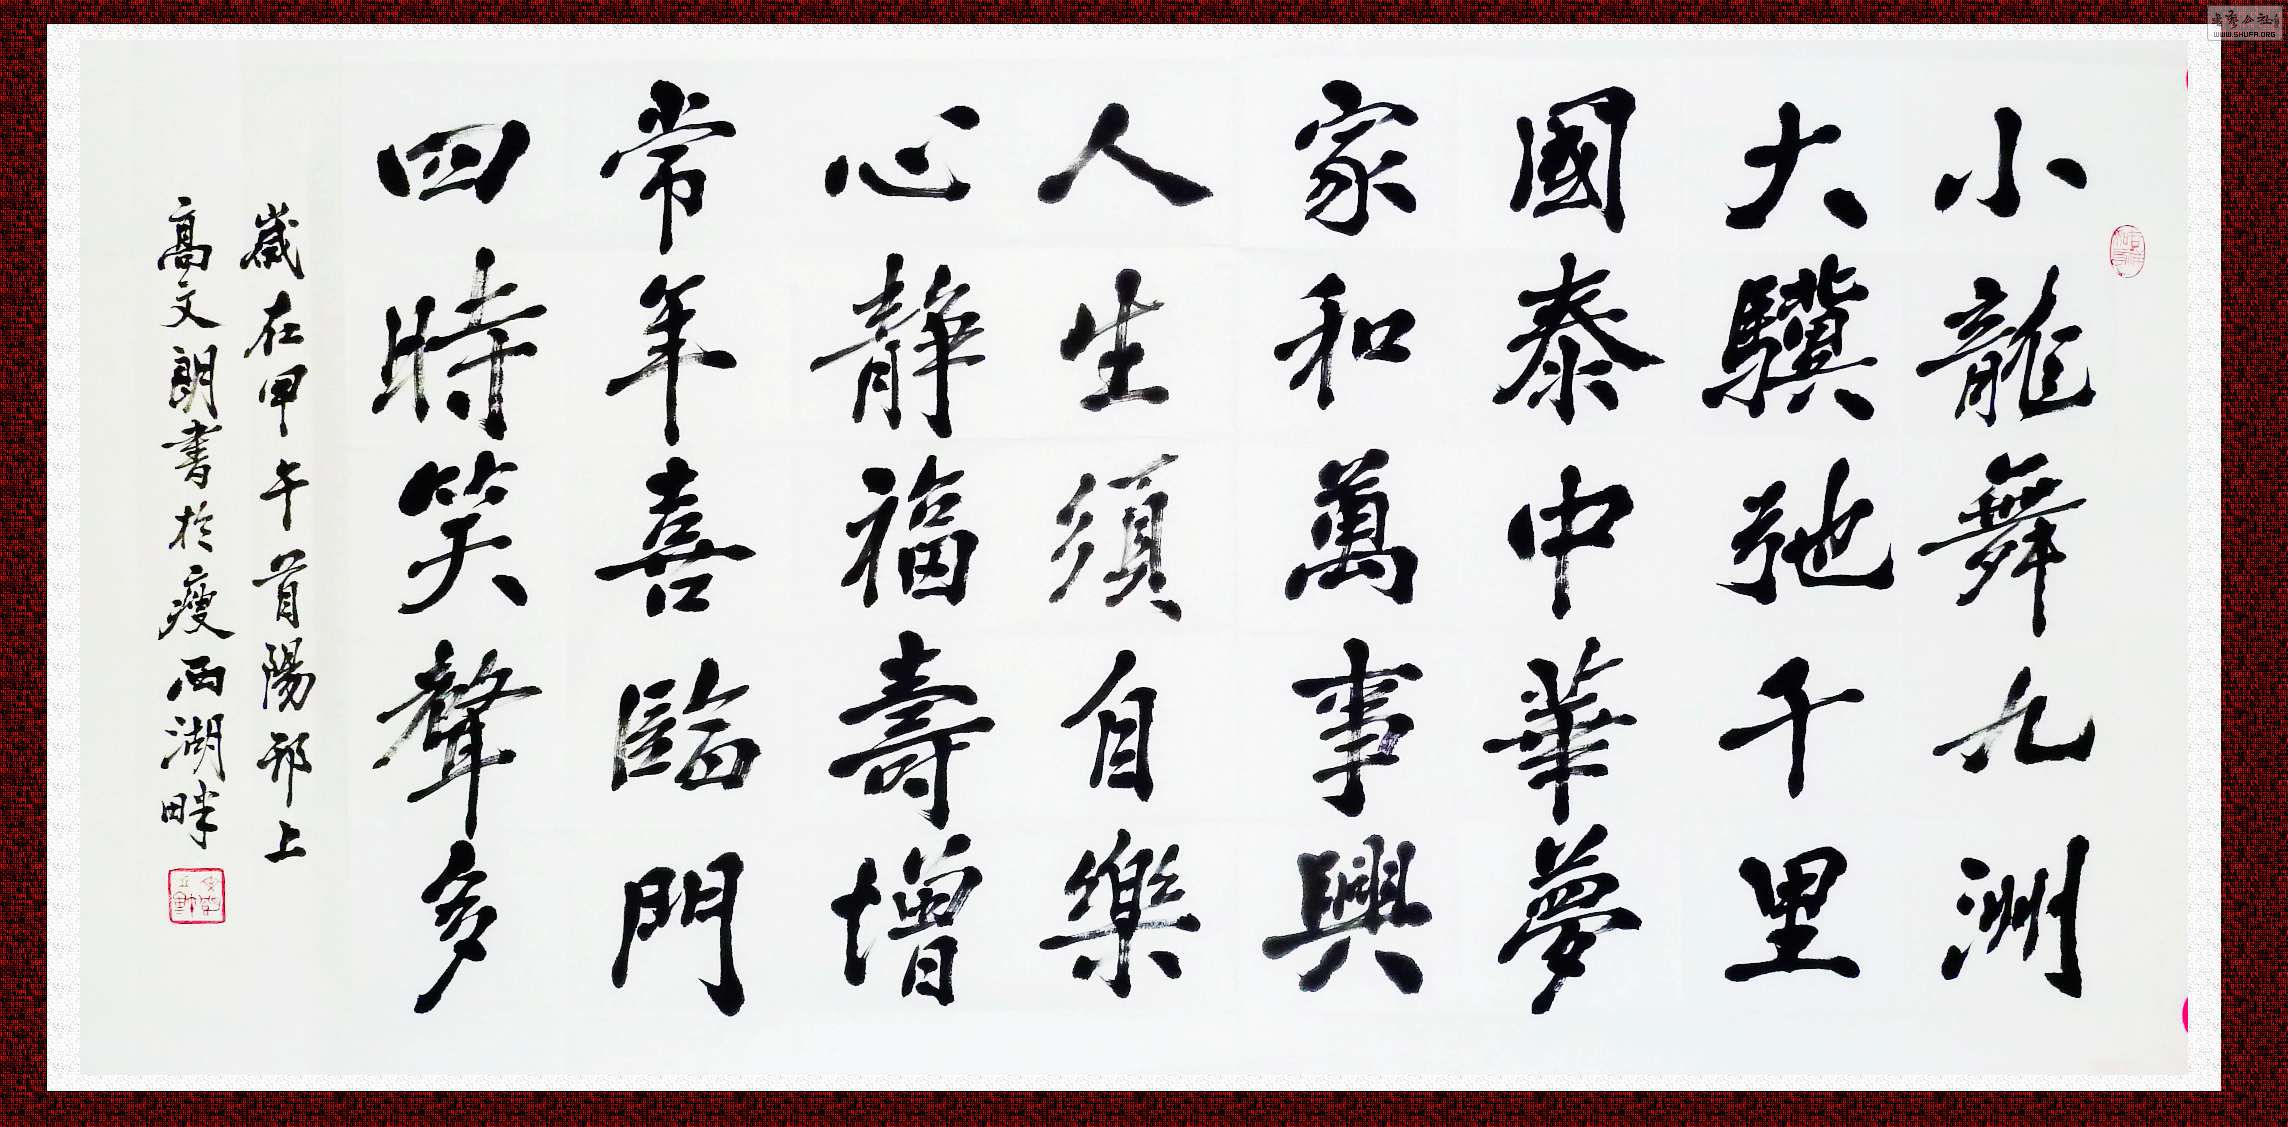 小龍舞九洲
大驥弛千里
國泰中華夢
家和萬事興
人生須自樂
心静福壽增
常年喜臨門
四時笑聲多
歲在甲午首陽邗上
高文朗書於瘦西湖畔
WWW.SHUFA.ORG